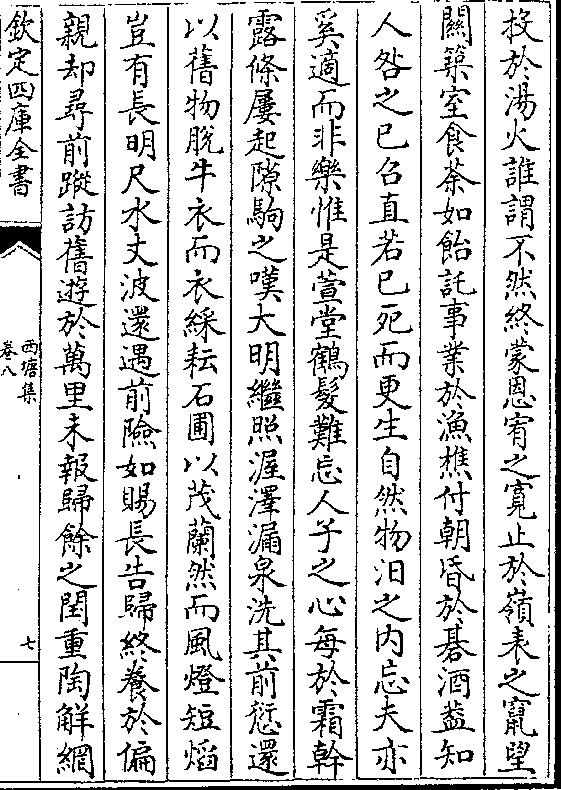 投於湯火誰謂不然終蒙恩宥之寛止於嶺表之竄望
闕築室食荼如飴託事業於漁樵付朝昏於碁酒葢知
人咎之已㕥直若已死而更生自然物汨之内忘夫亦
奚適而非樂惟是萱堂鶴髮難忘人子之心每於霜幹
露條屢起隙駒之嘆大明繼照渥澤漏泉洗其前愆還
以舊物脱牛衣而衣綵耘石圃以茂蘭然而風燈短焰
豈有長明尺水丈波還遇前險如賜長告歸終養於偏
親却尋前蹤訪舊遊於萬里未報歸餘之閏重陶解網
欽定四庫全書
西塘集
卷八
七